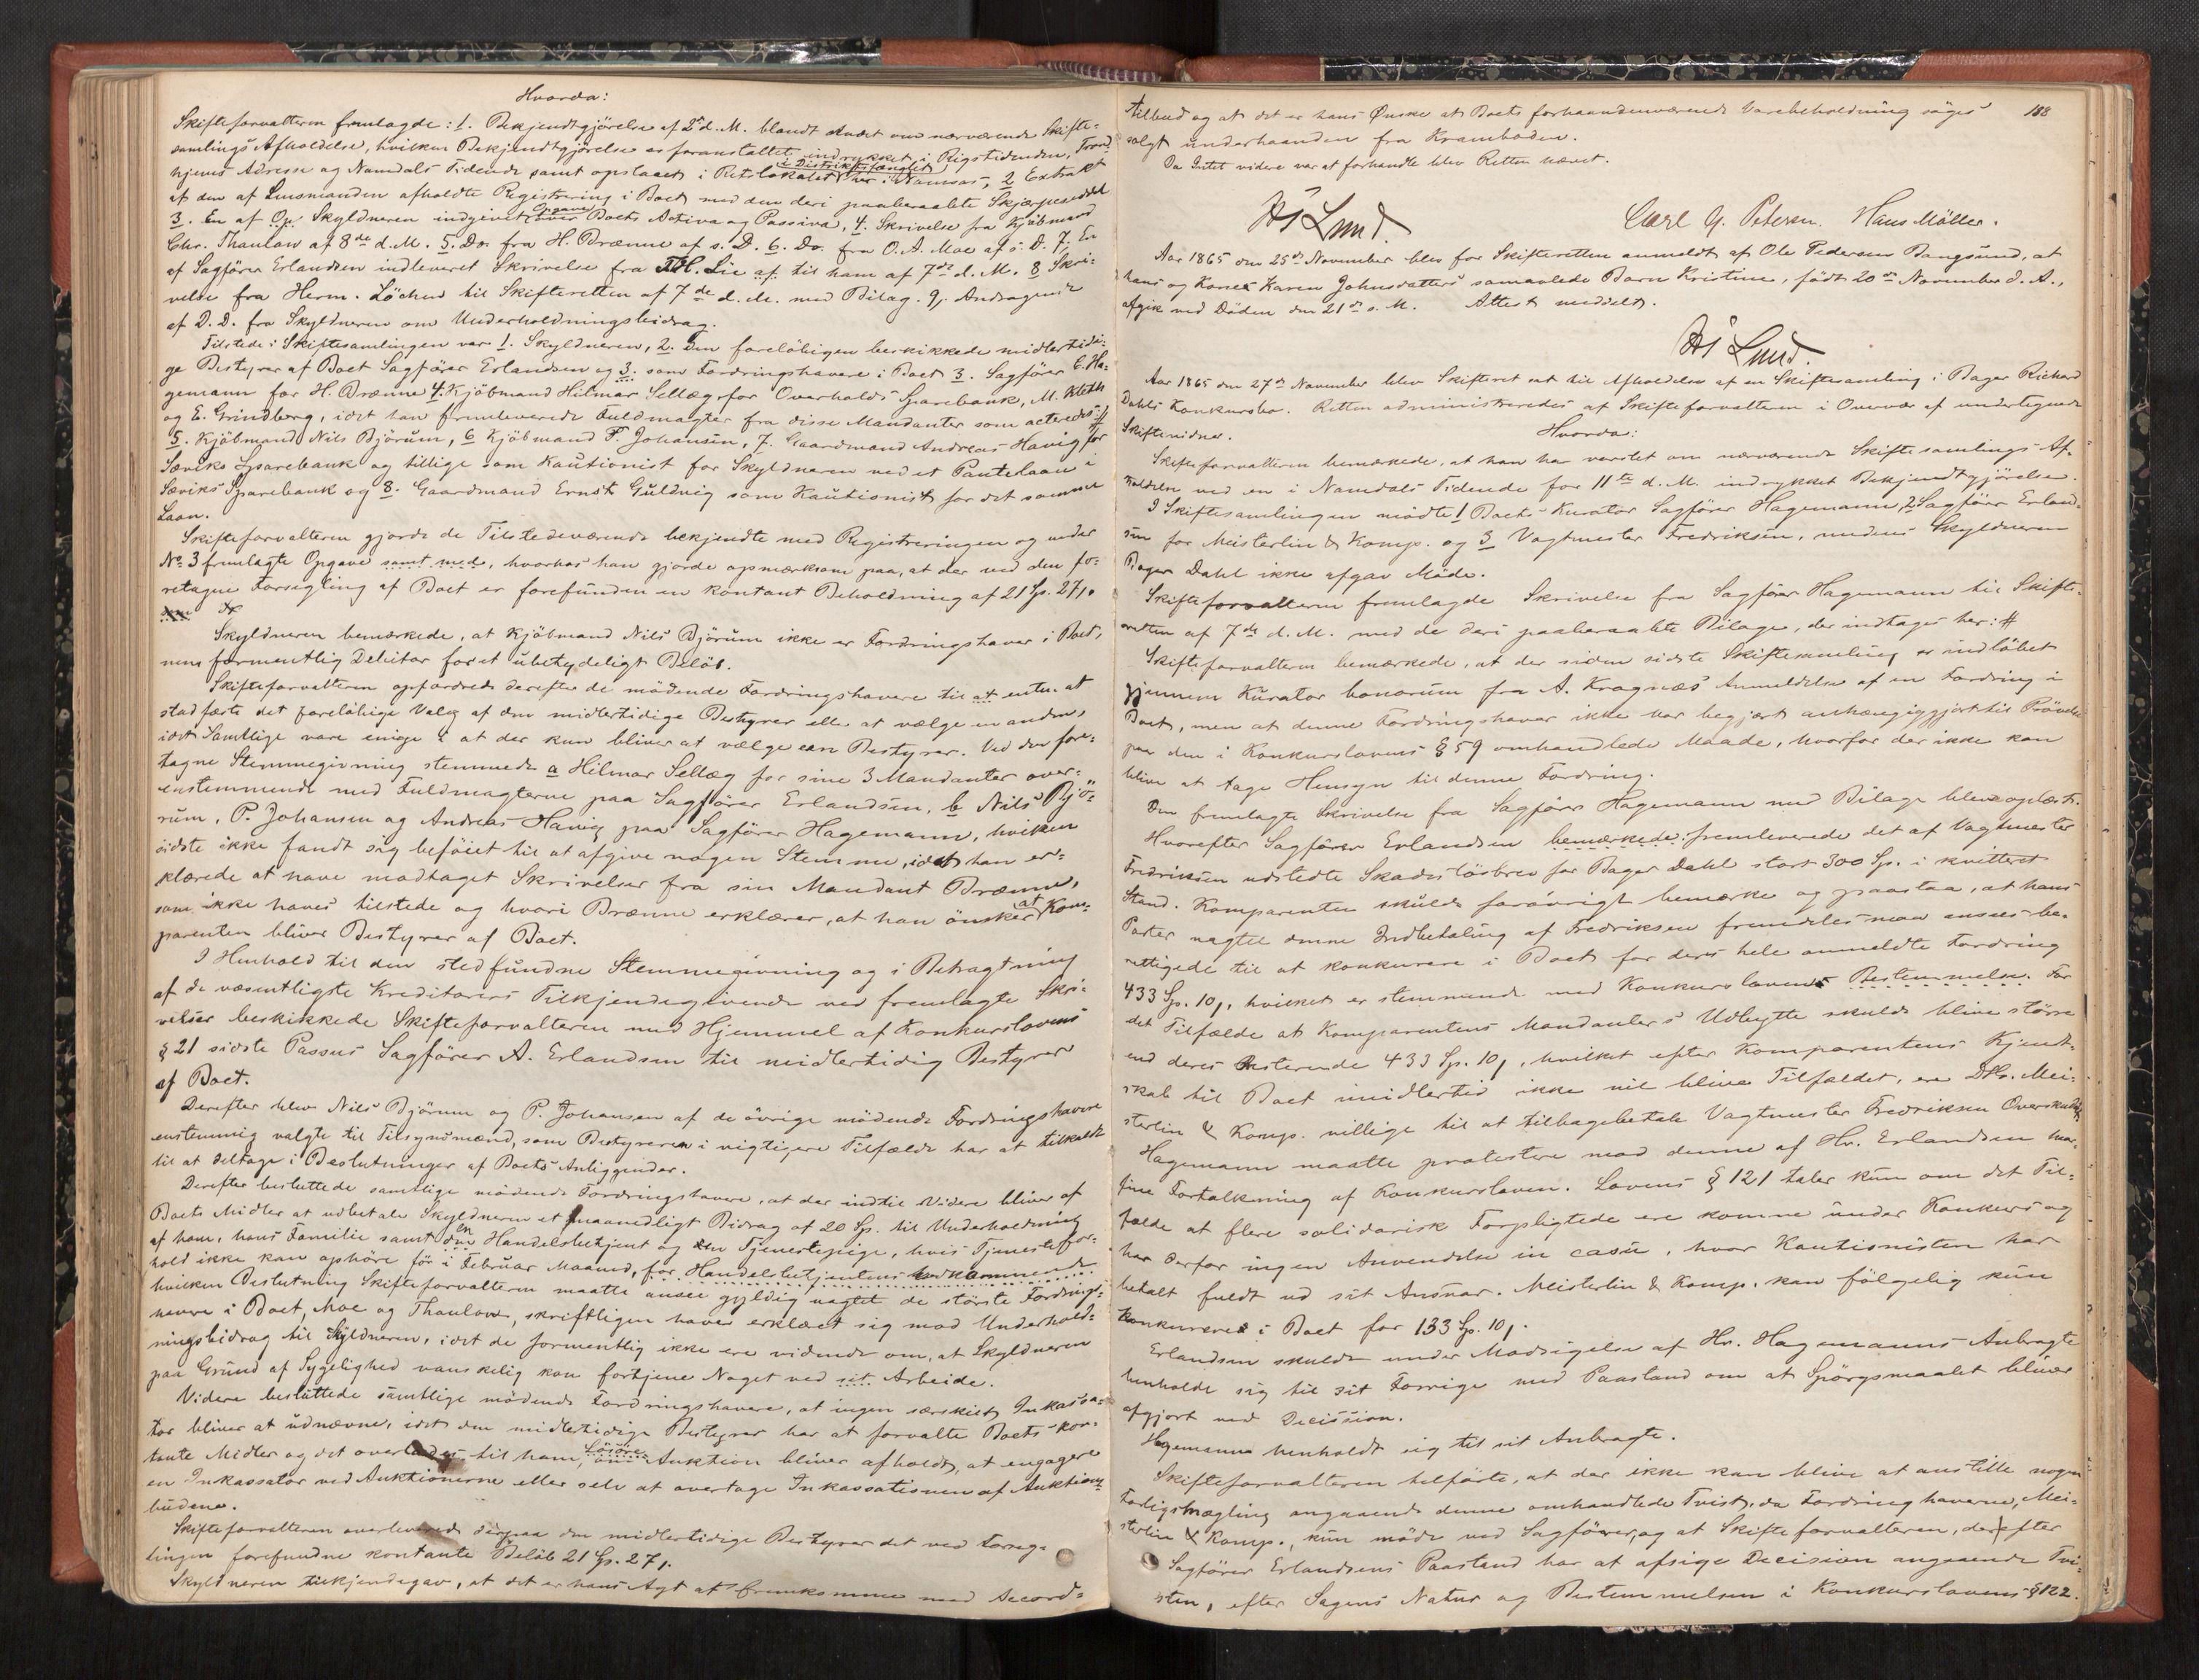 Hvorda:
Skifteforvalteren fremlagde: 1. Bekjendtgjörelse af 2den d. M. blandt Andet om nærværende Skifte-
samlings Afholdelse, hvilken Bekjendtgjörelse er foranstaltet indrykket i Rigstidenden, Trond-
hjems Adresse og Namdals Tidende samt opslaaet i Retslokalet i Distriktsfængslet her i Namsos, 2 Extrakt
af den af Lensmanden afholdte Registrering i Boet med den deri paaberaabte Skjærpeseddel
3. En af Op Skyldneren indgivet Opgave over Boets Activa og Passiva, 4. Skrivelse fra Kjöbmand
Chr. Thaulow af 8de d. M. 5. Do. fra H. Brænne af s. D. 6. Do. fra O. A. Moe af s. D. 7. En
af Sagförer Erlandsen indleveret Skrivelse fra H. Lie af til ham af 7de d. M. 8 Skri-
velse fra Herm. Löchen til Skifteretten af 7de d. M. med Bilag. 9. Andragende
af D. D. fra Skyldneren om Underholdningsbidrag.
Tilstede i Skiftesamlingen var 1. Skyldneren, 2. den foreløbigen beskikkede midlertidi-
ge Bestyrer af Boet Sagförer Erlandsen og 3. som Fordringshavere i Boet 3. Sagförer E. Ha-
gemann for H. Brænne 4. Kjöbmand Hilmar Sellæg for Overhalds Sparebank, M. Kleth
og E. Grindberg, idet han fremleverede Fuldmagter fra disse Mandanter som acteredes: #
5. Kjöbmand Nils Björum, 6 Kjöbmand P. Johansen, 7. Gaardmand Andreas Havig for
Sæviks Sparebank og tillige som Kautionist for Skyldneren ved et Pantelaan i
Sæviks Sparebank og 8. Gaardmand Ernst Guldvig som Kautionist for det samme
Laan.
Skifteforvalteren gjorde de Tilstedeværende bekjendte med Registreringen og under
No 3 fremlagte Opgave samt med, hvorhos han gjorde opmærksom paa, at der ved den fo-
retagne Forsegling af Boet er forefunden en kontant Beholdning af 21 Sp. 27 s.
Skyldneren bemærkede, at Kjöbmand Nils Björum ikke er Fordringshaver i Boet,
men formentlig Debitor for et ubetydeligt Belöb.
Skifteforvalteren opfordrede derefter de mödende Fordringshavere til at enten at
stadfæste det foreløbige Valg af den midlertidige Bestyrer eller at vælge en anden,
idet Samtlige vare enige i at der kun bliver at vælge een Bestyrer. Ved den fore-
tagne Stemmegivning stemmede a Hilmar Sellæg for sine 3 Mandanter over-
enstemmende med Fuldmagterne paa Sagförer Erlandsen, b Nils Björ-
rum, P. Johansen og Andreas Havig paa Sagförer Hagemann, hvilken
sidste ikke fandt sig beföiet til at afgive nogen Stemme, idet han er-
klærede at have modtaget Skrivelser fra sin Mandant Brænne,
som ikke haves tilstede og hvori Brænne erklærer, at han önsker at Kom-
parenten bliver Bestyrer af Boet.
I Henhold til den stedfundne Stemmegivning og i Betragtning
af de væsentligste Kreditorers Tilkjendegivende ved fremlagte Skri-
velser beskikkede Skifteforvalteren med Hjemmel af Konkurslovens
§ 21 sidste Passus Sagförer A. Erlandsen til midlertidig Bestyrer
af Boet.
Derefter blev Nils Björum og P. Johansen af de övrige mödende Fordringshavere
enstemmig valgte til Tilsynsmænd, som Bestyreren i vigtigere Tilfælde har at tilkalde
til at deltage i Beslutninger af Boets Anliggender.
Derefter besluttede samtlige mödende Fordringshavere, at der indtil Videre bliver af
Boets Midler at udbetale Skyldneren et maanedligt Bidrag af 20 Sp. til Underholdning
af ham, hans Familie samt en Handelsbetjent og en Tjenestepige, hvis Tjenestefor-
hold ikke kan ophöre för i Februar Maaned, for Handelsbetjentens Vedkommende
hvilken Beslutning Skifteforvalteren maatte ansee gyldig uagtet de störste Fordrings-
havere i Boet, Moe og Thaulow, skriftligen have erklæret sig mod Underhold-
ningsbidrag til Skyldneren, idet de formentlig ikke ere vidende om, at Skyldneren
paa Grund af Sygelighed vanskelig kan fortjene Noget ved sit Arbeide.
Videre besluttede samtlige mödende Fordringshavere, at ingen særskilt Inkassa-
tor bliver at udnævne, idet den midlertidige Bestyrer har at forvalte Boets kon-
tante Midler og det overlades til ham, om Lösöre Auktion bliver afholdt, at engagere
en Inkassator ved Auktionerne eller selv at overtage Inkassationen af Auktions-
budene.
Skifteforvalteren overleverede derpaa den midlertidige Bestyrer det ved Forseg-
lingen forefundne kontante Belöb 21 Sp. 27 s.
Skyldneren tilkjendegav, at det er hans Agt at fremkomme med Accord-
188
tilbud og at det er hans Ønske at Boets forhaandenværende Varebeholdning söges
solgt underhaanden fra Kramboden.
Da Intet videre var at forhandle blev Retten hævet.
Lund.
Carl G. Petersen. Hans Möller.
Aar 1865 den 25de November blev for Skifteretten anmeldt af Ole Pedersen Bangsund, at
hans og Kones Karen Johnsdatters samavlede Barn Kristine, födt 20de November d. A.,
afgik ved Döden den 21de s. M. Attest meddelt.
Lund.
Aar 1865 den 27de November blev Skifteret sat til Afholdelse af en Skiftesamling i Bager Richard
Dahls Konkursbo. Retten administreredes af Skifteforvalteren i Overvær af undertegnede
Skiftevidner.
Hvorda:
Skifteforvalteren bemærkede, at han har varslet om nærværende Skiftesamlings Af-
holdelse ved en i Namdals Tidende for 11te d. M. indrykket Bekjendtgjörelse.
I Skiftesamlingen mödte 1 Boets Kurator Sagförer Hagemann, 2 Sagförer Erland-
sen for Meisterlin & Komp. og 3 Vagtmester Fredriksen, medens Skyldneren
Bager Dahl ikke afgav Möde.
Skifteforvalteren fremlagde Skrivelse fra Sagförer Hagemann til Skifte-
retten af 7de d. M. med de deri paaberaabte Bilage, der indtages her: #
Skifteforvalteren bemærkede, at der siden sidste Skiftesamling er indlöbet
gjennem Kurator bonorum fra A. Kragnæs Anmeldelse af en Fordring i
Boet, men at denne Fordringshaver ikke har begjært anhængiggjort til Prövelse
paa den i Konkurslovens § 59 omhandlede Maade, hvorfor der ikke kan
blive at tage Hensyn til denne Fordring.
Den fremlagte Skrivelse fra Sagförer Hagemann med Bilage blev oplæst.
Hvorefter Sagförer Erlandsen bemærkede: fremleverede det af Vagtmester
Fredriksen udstedte Skadeslösbrev for Bager Dahl stort 300 Sp. i kvitteret
Stand. Komparenten skulde forövrigt bemærke og paastaa, at hans
Parter uagtet denne Indbetaling af Fredriksen fremdeles maa ansees be-
rettigede til at konkurrere i Boet for deres hele anmeldte Fordring
433 Sp. 10 s, hvilket er stemmende med Konkurslovens Bestemmelser. For
det Tilfælde at Komparentens Mandanters Udbytte skulde blive större
end deres resterende 433 Sp. 10 s, hvilket efter Komparentens Kjend-
skab til Boet imidlertid ikke vil blive Tilfældet, ere DHr. Mei-
sterlin & Komp. villige til at tilbagebetale Vagtmester Fredriksen Overskudet
Hagemann maatte protestere mod denne af Hr. Erlandsen
Fortolkning af Konkursloven. Lovens § 121 taler kun om det Til-
fælde at flere solidarisk Forpligtede ere komne under Konkurs og
har derfor ingen Anvendelse in casu, hvor Kautionisten har
betalt fuldt ud sit Ansvar. Meisterlin & Komp. kan fölgelig kun
konkurrere i Boet for 133 Sp. 10 s.
Erlandsen skulde under Modsigelse af Hr. Hagemanns Anbragte
henholde sig til sit Forrige med Paastand om at Spörgsmaalet bliver
afgjort ved Decission.
Hagemann henholdt sig til sit Anbragte.
Skifteforvalteren tilförte, at der ikke kan blive at anstille nogen
Forligsmægling angaaende denne omhandlede Tvist, da Fordringhaverne, Mei-
sterlin & Komp., kun möde ved Sagförer, og at Skifteforvalteren, der efter
Sagförer Erlandsens Paastand har at afsige Decision angaaende Tvi-
sten, efter Sagens Natur og Bestemmelsen i Konkurslovens § 122.